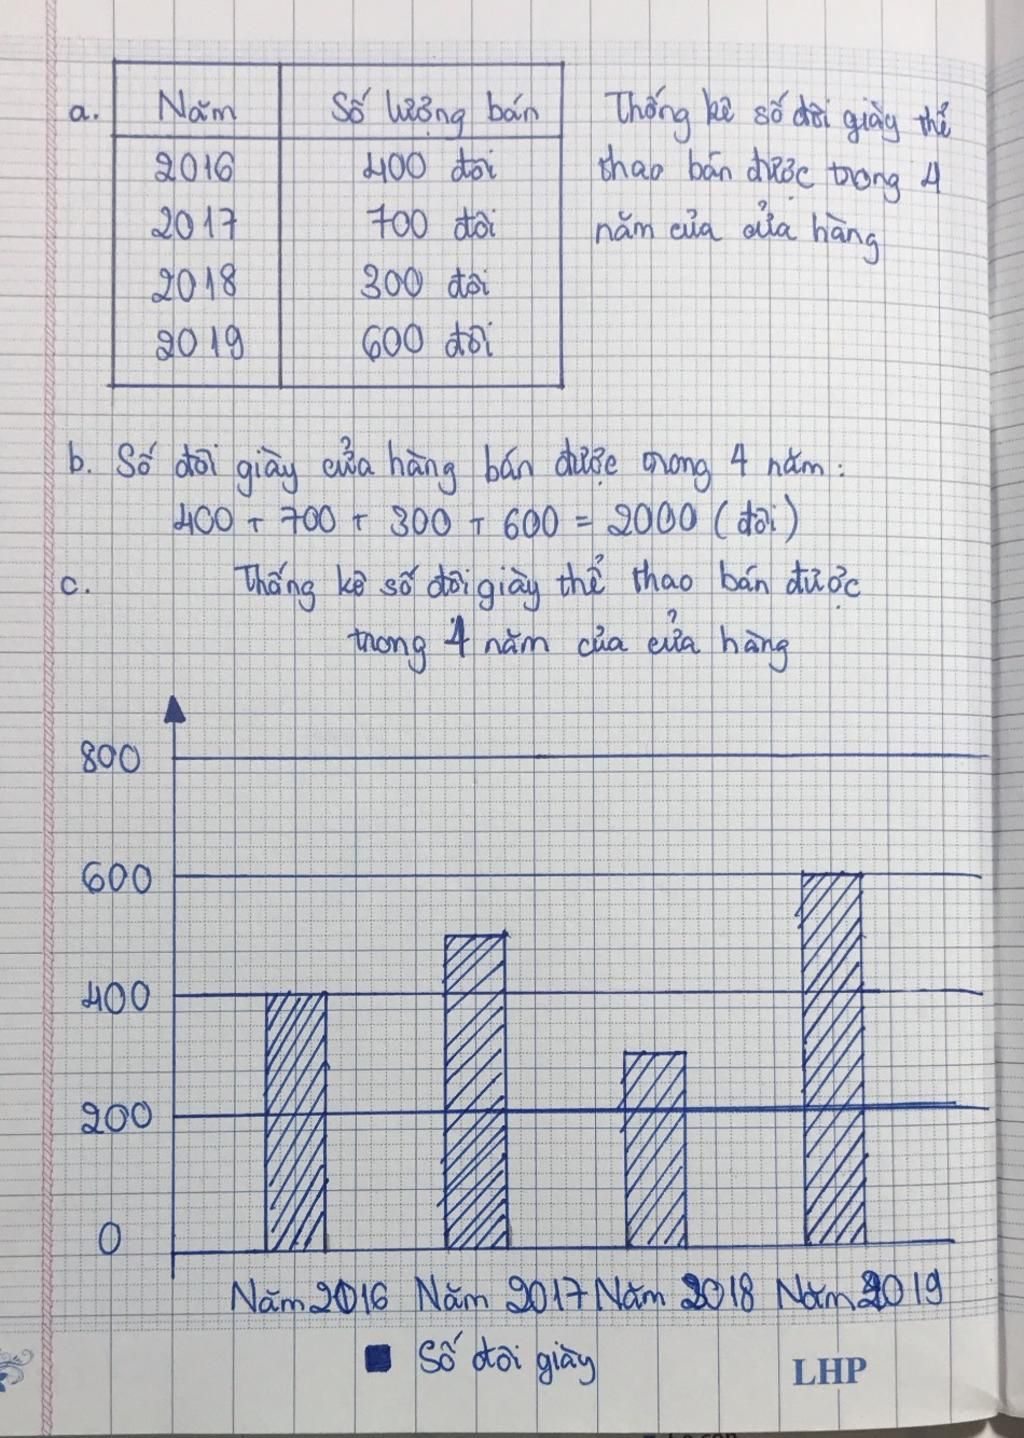 a.
Năm Số lượng bán
2016 400 đôi
2017 700 đôi
2018 300 đôi
2019 600 đôi
Thống kê số đôi giày thể
thao bán được trong 4
năm của cửa hàng
b. Số đôi giày cửa hàng bán được trong 4 năm:
400 + 700 + 300 + 600 = 2000 (đôi)
c. Thống kê số đôi giày thể thao bán được
trong 4 năm của cửa hàng
800
600
400
200
0
Năm 2016 Năm 2017 Năm 2018 Năm 2019
Số đôi giày
LHP